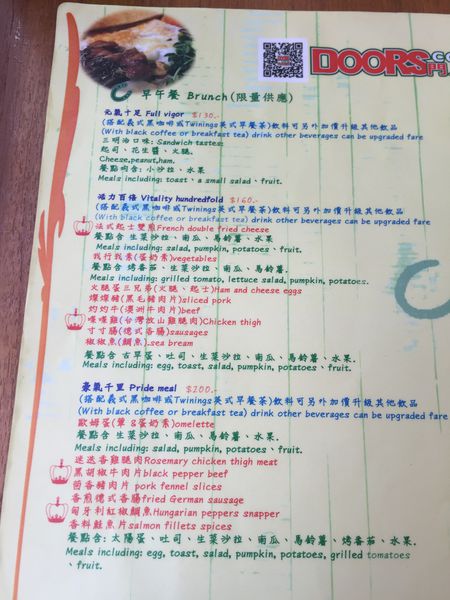 DOORS.co
門
早午餐 Brunch(限量供應)
元氣十足 Full vigor $130.-
(搭配義式黑咖啡或Twinings英式早餐茶)飲料可另外加價升級其他飲品
(With black coffee or breakfast tea) drink other beverages can be upgraded fare
三明治口味: Sandwich tastes:
起司、花生醬、火腿.
Cheese,peanut,ham.
餐點內含: 小沙拉、水果
Meals including: toast、a small salad、fruit.
活力百倍 Vitality hundredfold $160.-
(搭配義式黑咖啡或Twinings英式早餐茶)飲料可另外加價升級其他飲品
(With black coffee or breakfast tea) drink other beverages can be upgraded fare
法式起士雙煎French double fried cheese
餐點含 生菜沙拉、南瓜、馬鈴薯、水果
Meals including: salad, pumpkin, potatoes、fruit.
我行我素(蛋奶素)vegetables
餐點含 烤番茄、生菜沙拉、南瓜、馬鈴薯.
Meals including: grilled tomato, lettuce salad, pumpkin, potatoes.
火腿蛋三兄弟(火腿、起士)Ham and cheese eggs
燦燦豬(黑毛豬肉片)sliced pork
灼灼牛(澳洲牛肉片)beef
喋喋雞(台灣放山雞腿肉)Chicken thigh
寸寸腸(德式香腸)sausages
椒椒魚(鯛魚).sea bream
餐點含 古早蛋、吐司、生菜沙拉、南瓜、馬鈴薯、水果.
Meals including: egg, toast, salad, pumpkin, potatoes、fruit.
豪氣千里 Pride meal $200.-
(搭配義式黑咖啡或Twinings英式早餐茶)飲料可另外加價升級其他飲品
(With black coffee or breakfast tea) drink other beverages can be upgraded fare
歐姆蛋(葷 &蛋奶素)omelette
餐點含 生菜沙拉、南瓜、馬鈴薯、水果.
Meals including: salad, pumpkin, potatoes、fruit.
迷迭香雞腿肉Rosemary chicken thigh meat
黑胡椒牛肉片black pepper beef
茴香豬肉片 pork fennel slices
香煎德式香腸fried German sausage
匈牙利紅椒鯛魚Hungarian peppers snapper
香料鮭魚片salmon fillets spices
餐點含: 太陽蛋、吐司、生菜沙拉、南瓜、馬鈴薯、烤番茄、水果.
Meals including: egg, toast, salad, pumpkin, potatoes, grilled tomatoes
、fruit.